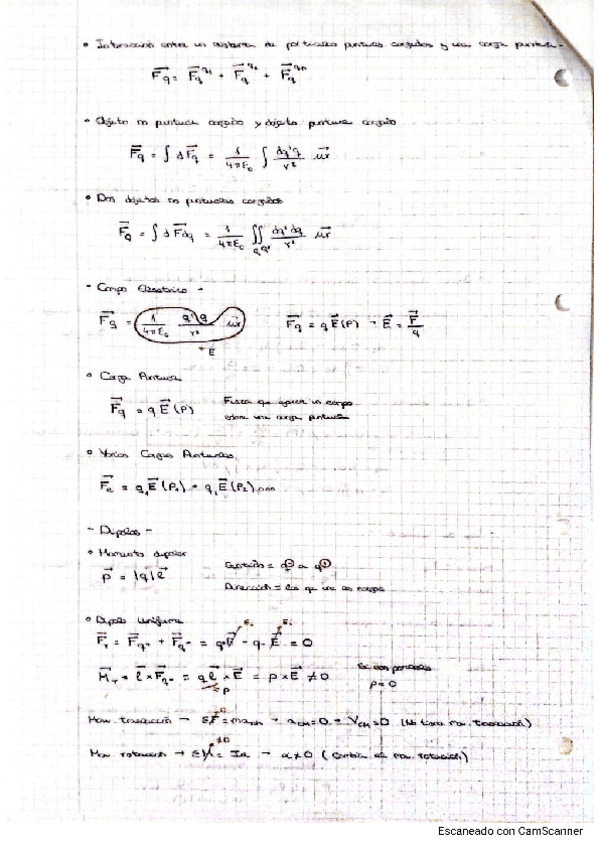 • Interacción entre un sistema de partículas puntuales cargadas y una carga puntual -
F⃗q = F⃗q^q₁ + F⃗q^q₂ + F⃗q^qₙ
• Objeto no puntual cargado y objeto puntual cargado
F⃗q = ∫ dF⃗q = 1/4πε₀ ∫ dq'q/r² u⃗r
• Dos objetos no puntuales cargados
F⃗q = ∫ dF⃗dq = 1/4πε₀ ∬ dq'dq/r² u⃗r
- Campo Eléctrico -
F⃗q = 1/4πε₀ q'q/r² u⃗r F⃗q = q E⃗(P) → E⃗ = F⃗/q
→ E
• Carga Puntual
F⃗q = q E⃗(P) Fuerza que ejerce un campo
sobre una carga puntual
• Varias Cargas Puntuales
F⃗e = q₁E⃗(P₁) + q₁E⃗(P₂)
- Dipolos -
• Momento dipolar
p⃗ = |q|l⃗ Sentido = q⊖ a q⊕
Dirección = la que une las cargas
• Dipolo Uniforme
F⃗T = F⃗q⁺ + F⃗q⁻ = q·E⃗ - q·E⃗ = 0
M⃗T = l⃗ × F⃗q⁺ = q l⃗ × E⃗ = p × E⃗ ≠ 0
→ p p = 0
Mov. traslación → ΣF⃗ = maCM → aCM = 0 → VCM = 0 (No tiene mov. traslación)
Mov. rotación → ΣM⃗ = Iα → α ≠ 0 (Cambia el mov. rotación)
Escaneado con CamScanner